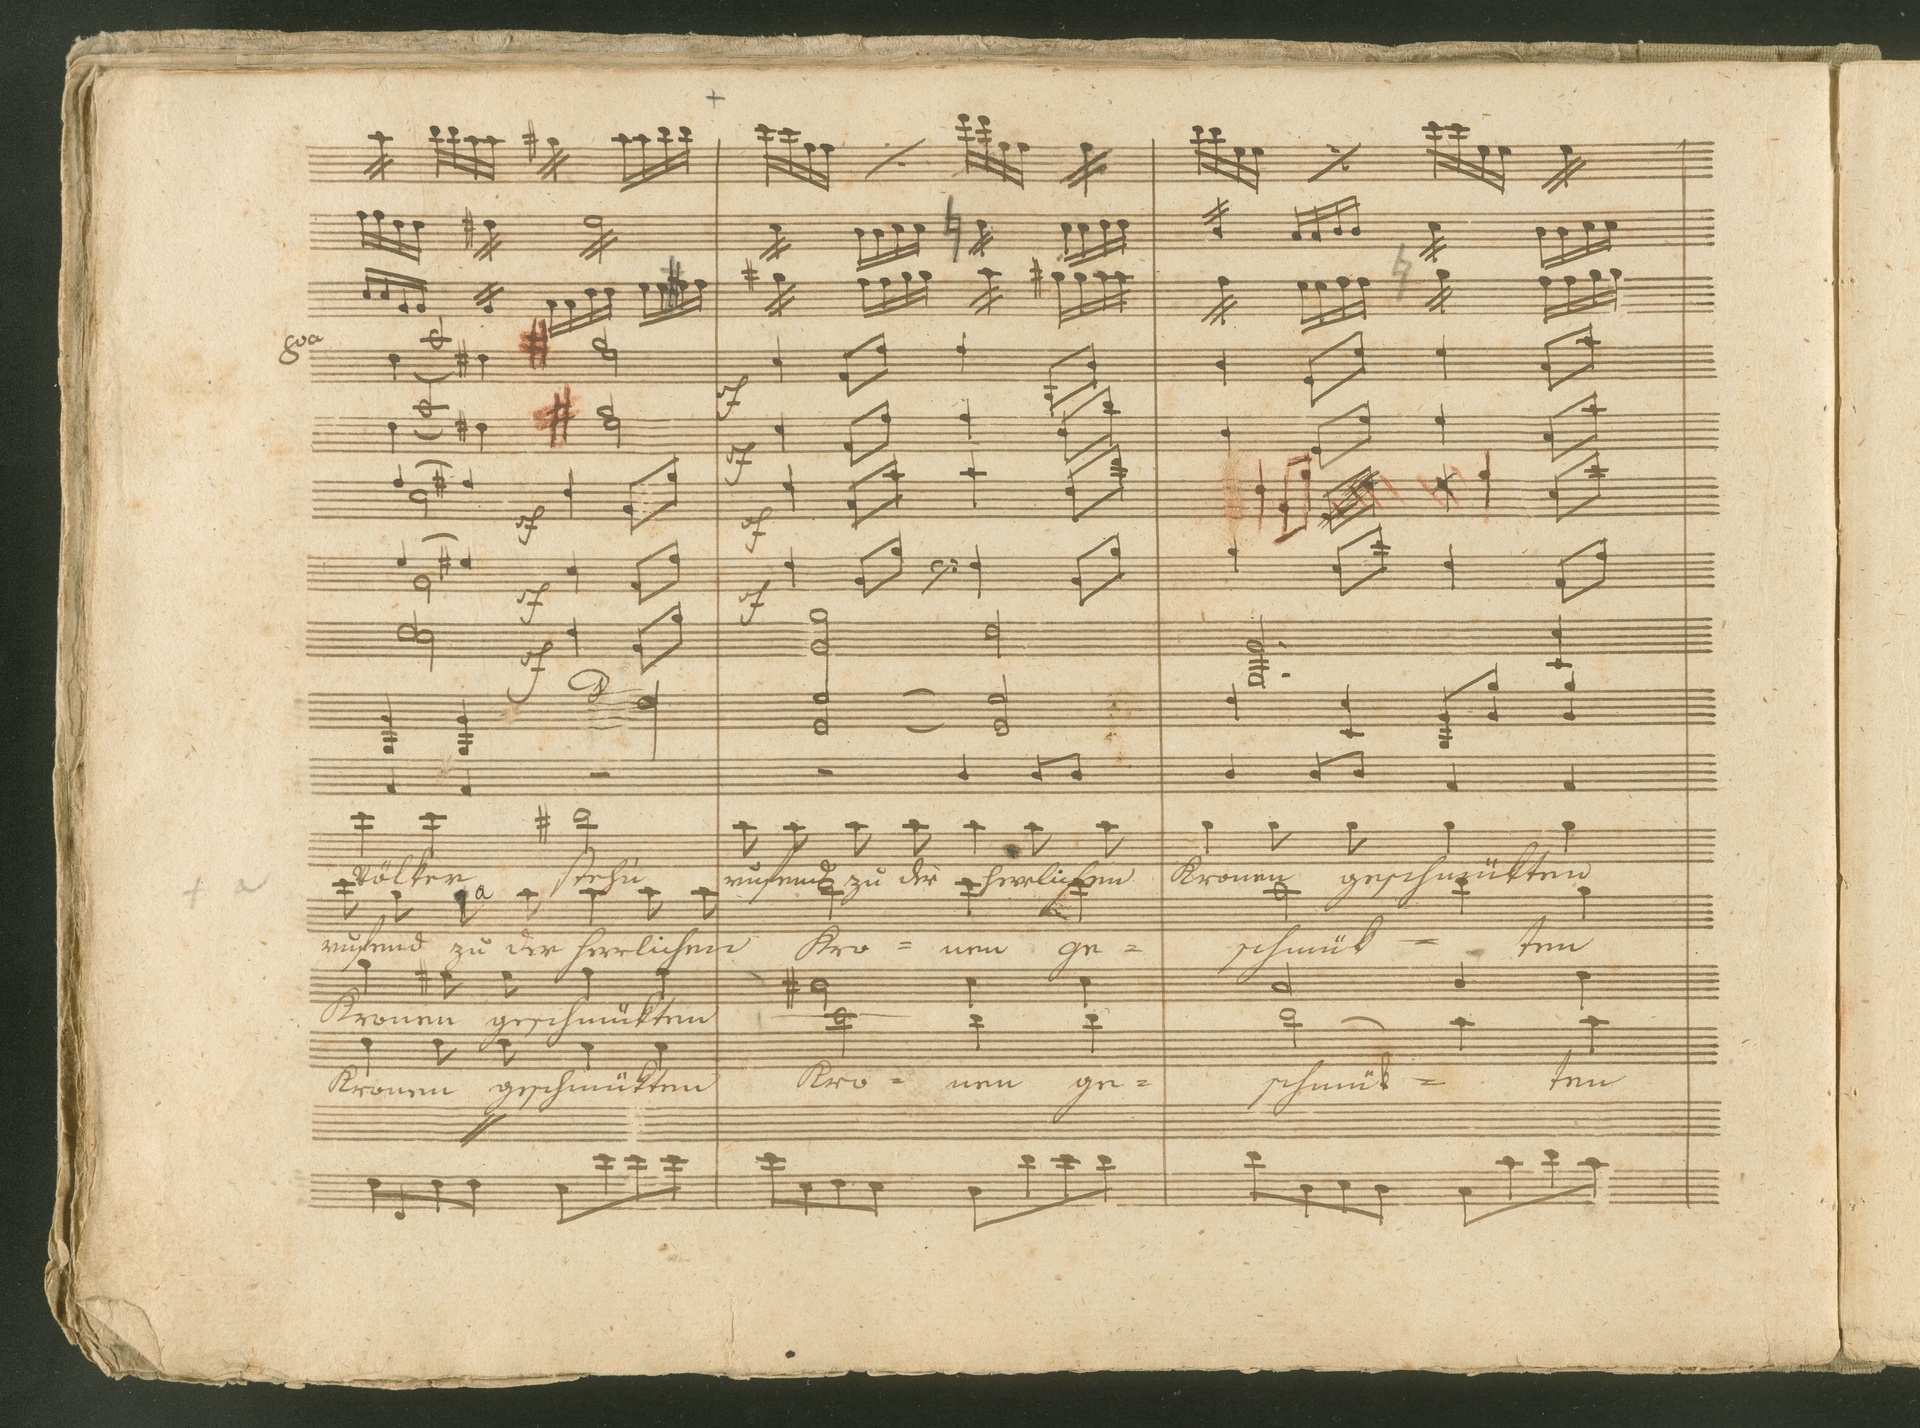 +
8va
sf
sf
sf sf
sf sf
sf
Völker stehn rufend zu der herrlichen Kronen geschmükten
+ a
a
rufend zu der herrlichen Kro = nen ge = schmük = ten
Kronen geschmükten
Kronen geschmükten Kro = nen ge = schmük = ten